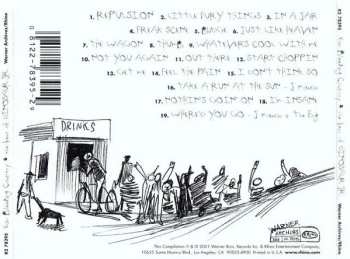 1. REPULSION 2. LITTLE FURY THINGS 3. IN A JAR
4. FREAK SCENE 5. BUDGE 6. JUST LIKE HEAVEN
7. THE WAGON 8. THUMB 9. WHATEVERS COOL WITH ME
10. NOT YOU AGAIN 11. OUT THERE 12. START CHOPPIN
13. GET ME 14. FEEL THE PAIN 15. I DON'T THINK SO
16. TAKE A RUN AT THE SUN - J MASCIS
17. NOTHINS GOIN ON 18. I'M INSANE
19. WHERE'D YOU GO - J MASCIS & THE FOG
8122-78395-2
DRINKS
WARNER
ARCHIVES
This Compilation ℗ & © 2001 Warner Bros. Records Inc. & Rhino Entertainment Company,
10635 Santa Monica Blvd., Los Angeles, CA 90025-4900. Printed in U.S.A. www.rhino.com
R2 78395
Warner Archives/Rhino
R2 78395
Warner Archives/Rhino